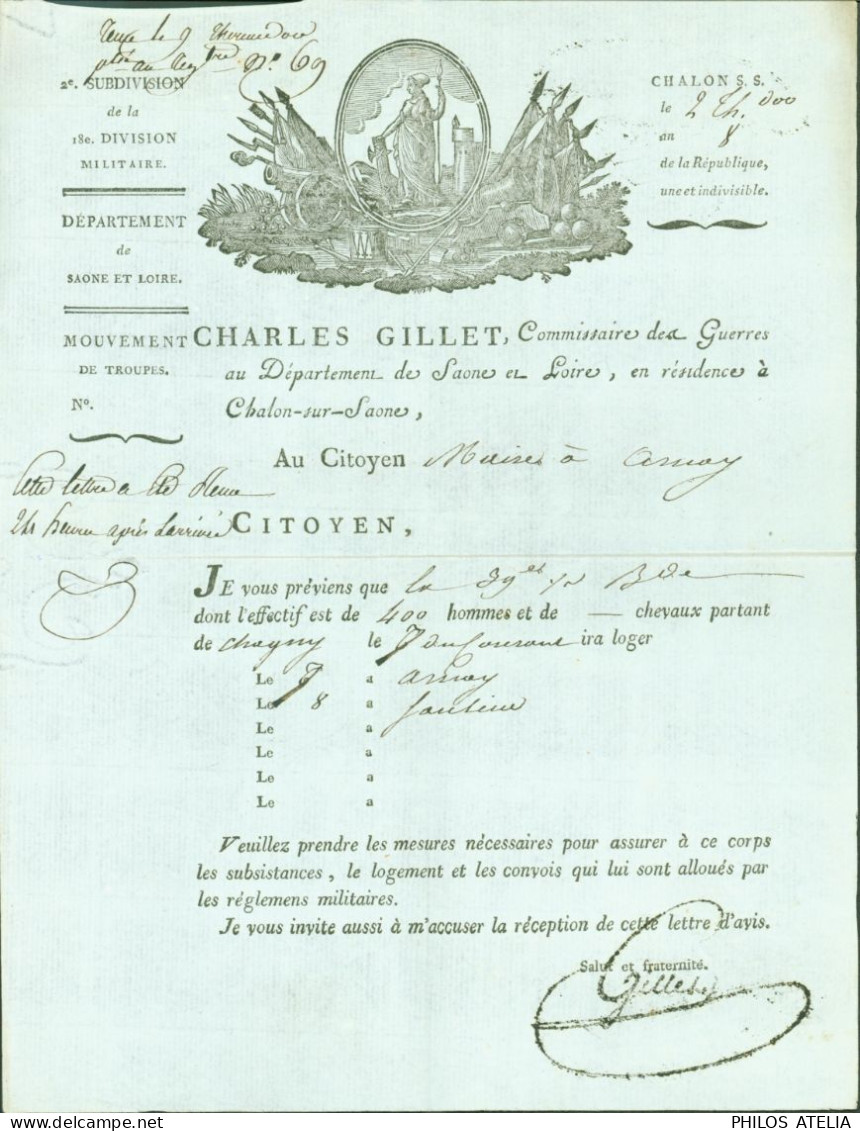 le 9 Thermidor
No 69
2e. SUBDIVISION
de la
18e. DIVISION
MILITAIRE.
DÉPARTEMENT
de
SAONE ET LOIRE.
MOUVEMENT
DE TROUPES.
No.
CHALON S. S.
le 2 Th. dor
an 8
de la République,
une et indivisible.
CHARLES GILLET, Commissaire des Guerres
au Département de Saone et Loire, en résidence à
Chalon-sur-Saone,
Au Citoyen Maire à arnay
Cette lettre a été
24 heures après larrivée
CITOYEN,
JE vous préviens que la Bde
dont l'effectif est de 400 hommes et de — chevaux partant
de chagny le 7 du Courant ira loger
Le 7 a arnay
Le 8 a
Le a
Le a
Le a
Le a
Veuillez prendre les mesures nécessaires pour assurer à ce corps
les subsistances, le logement et les convois qui lui sont alloués par
les réglemens militaires.
Je vous invite aussi à m'accuser la réception de cette lettre d'avis.
Salut et fraternité.
Gillet
PHILOS ATELIA